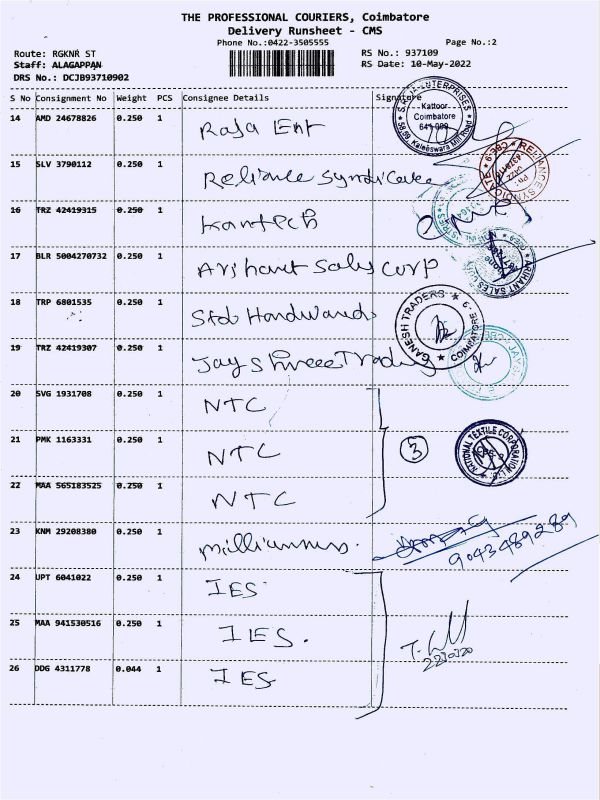 THE PROFESSIONAL COURIERS, Coimbatore
Delivery Runsheet - CMS
Phone No.:0422-3505555 Page No.:2
Route: RGKNR ST RS No.: 937109
Staff: ALAGAPPAN RS Date: 10-May-2022
DRS No.: DCJB93710902
S No Consignment No Weight PCS Consignee Details Signature
14 AMD 24678826 0.250 1 Raja Ent
15 SLV 3790112 0.250 1 Reliance
16 TRZ 42419315 0.250 1 Kantech
17 BLR 5004270732 0.250 1 Arihant Sales Corp
18 TRP 6801535 0.250 1 Std Hardwards
19 TRZ 42419307 0.250 1 Jayshreee Trading
20 SVG 1931708 0.250 1 NTC
21 PMK 1163331 0.250 1 NTC
3
22 MAA 565183525 0.250 1 NTC
23 KNM 29208380 0.250 1
9043489289
24 UPT 6041022 0.250 1 IES
25 MAA 941530516 0.250 1 IES.
26 DDG 4311778 0.044 1 IES
S.RAJA ENTERPRISES
Kattoor
Coimbatore
RELIANCE SYNDICATE
ARIHANT SALES
GANESH TRADERS
COIMBATORE - 9
NATIONAL TEXTILE CORPORATION LTD.